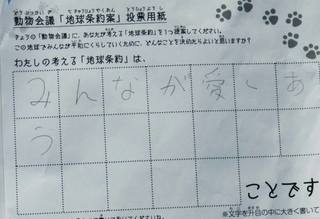 動物会議「地球条約案」投票用紙
きょうの「動物会議」に、あなたが考える「地球条約」を1つ提案してください。
この地球でみんなが平和にくらしていくために、どんなことを決めたらよいと思いますか?
わたしの考える「地球条約」は、
みんなが愛しあ
う
ことです
※文字を升目の中に大きく書いて